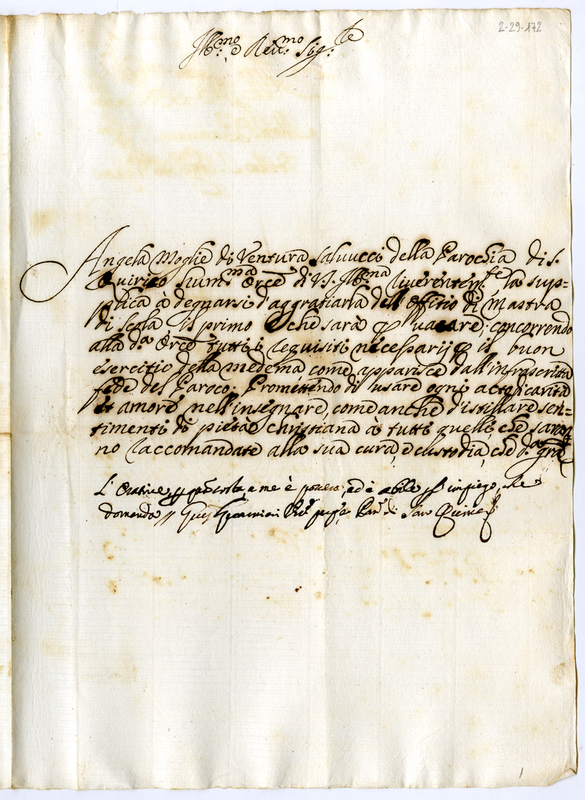 2-29-172
Ill.mo e Rev.mo Sig.re
Angela Moglie di Ventura Saluucci della Parochia di S.
Quirico hum.ma Orce di V.S. Ill.ma riuerentem.te la sup-
plica à degnarsi d'aggratiarla dell'offitio di Mastra
di scola il primo che sarà p uacare; concorrendo
alla d.a Orce tutti i requisiti necessarij p il buon
esercitio della medema come apparisce dall'infrascritta
fede del Paroco: Promettendo di usare ogni atto di carità
et amore nell'insegnare, come anche distillare sen-
timenti di pietà christiana à tutti quelli che saran-
no raccomandate alla sua cura, e custodia, che d.a gra
L'Oratrice p esser nota a me è pouera, ed è abile p l'impiego, che
domanda Par.o di San Quirico